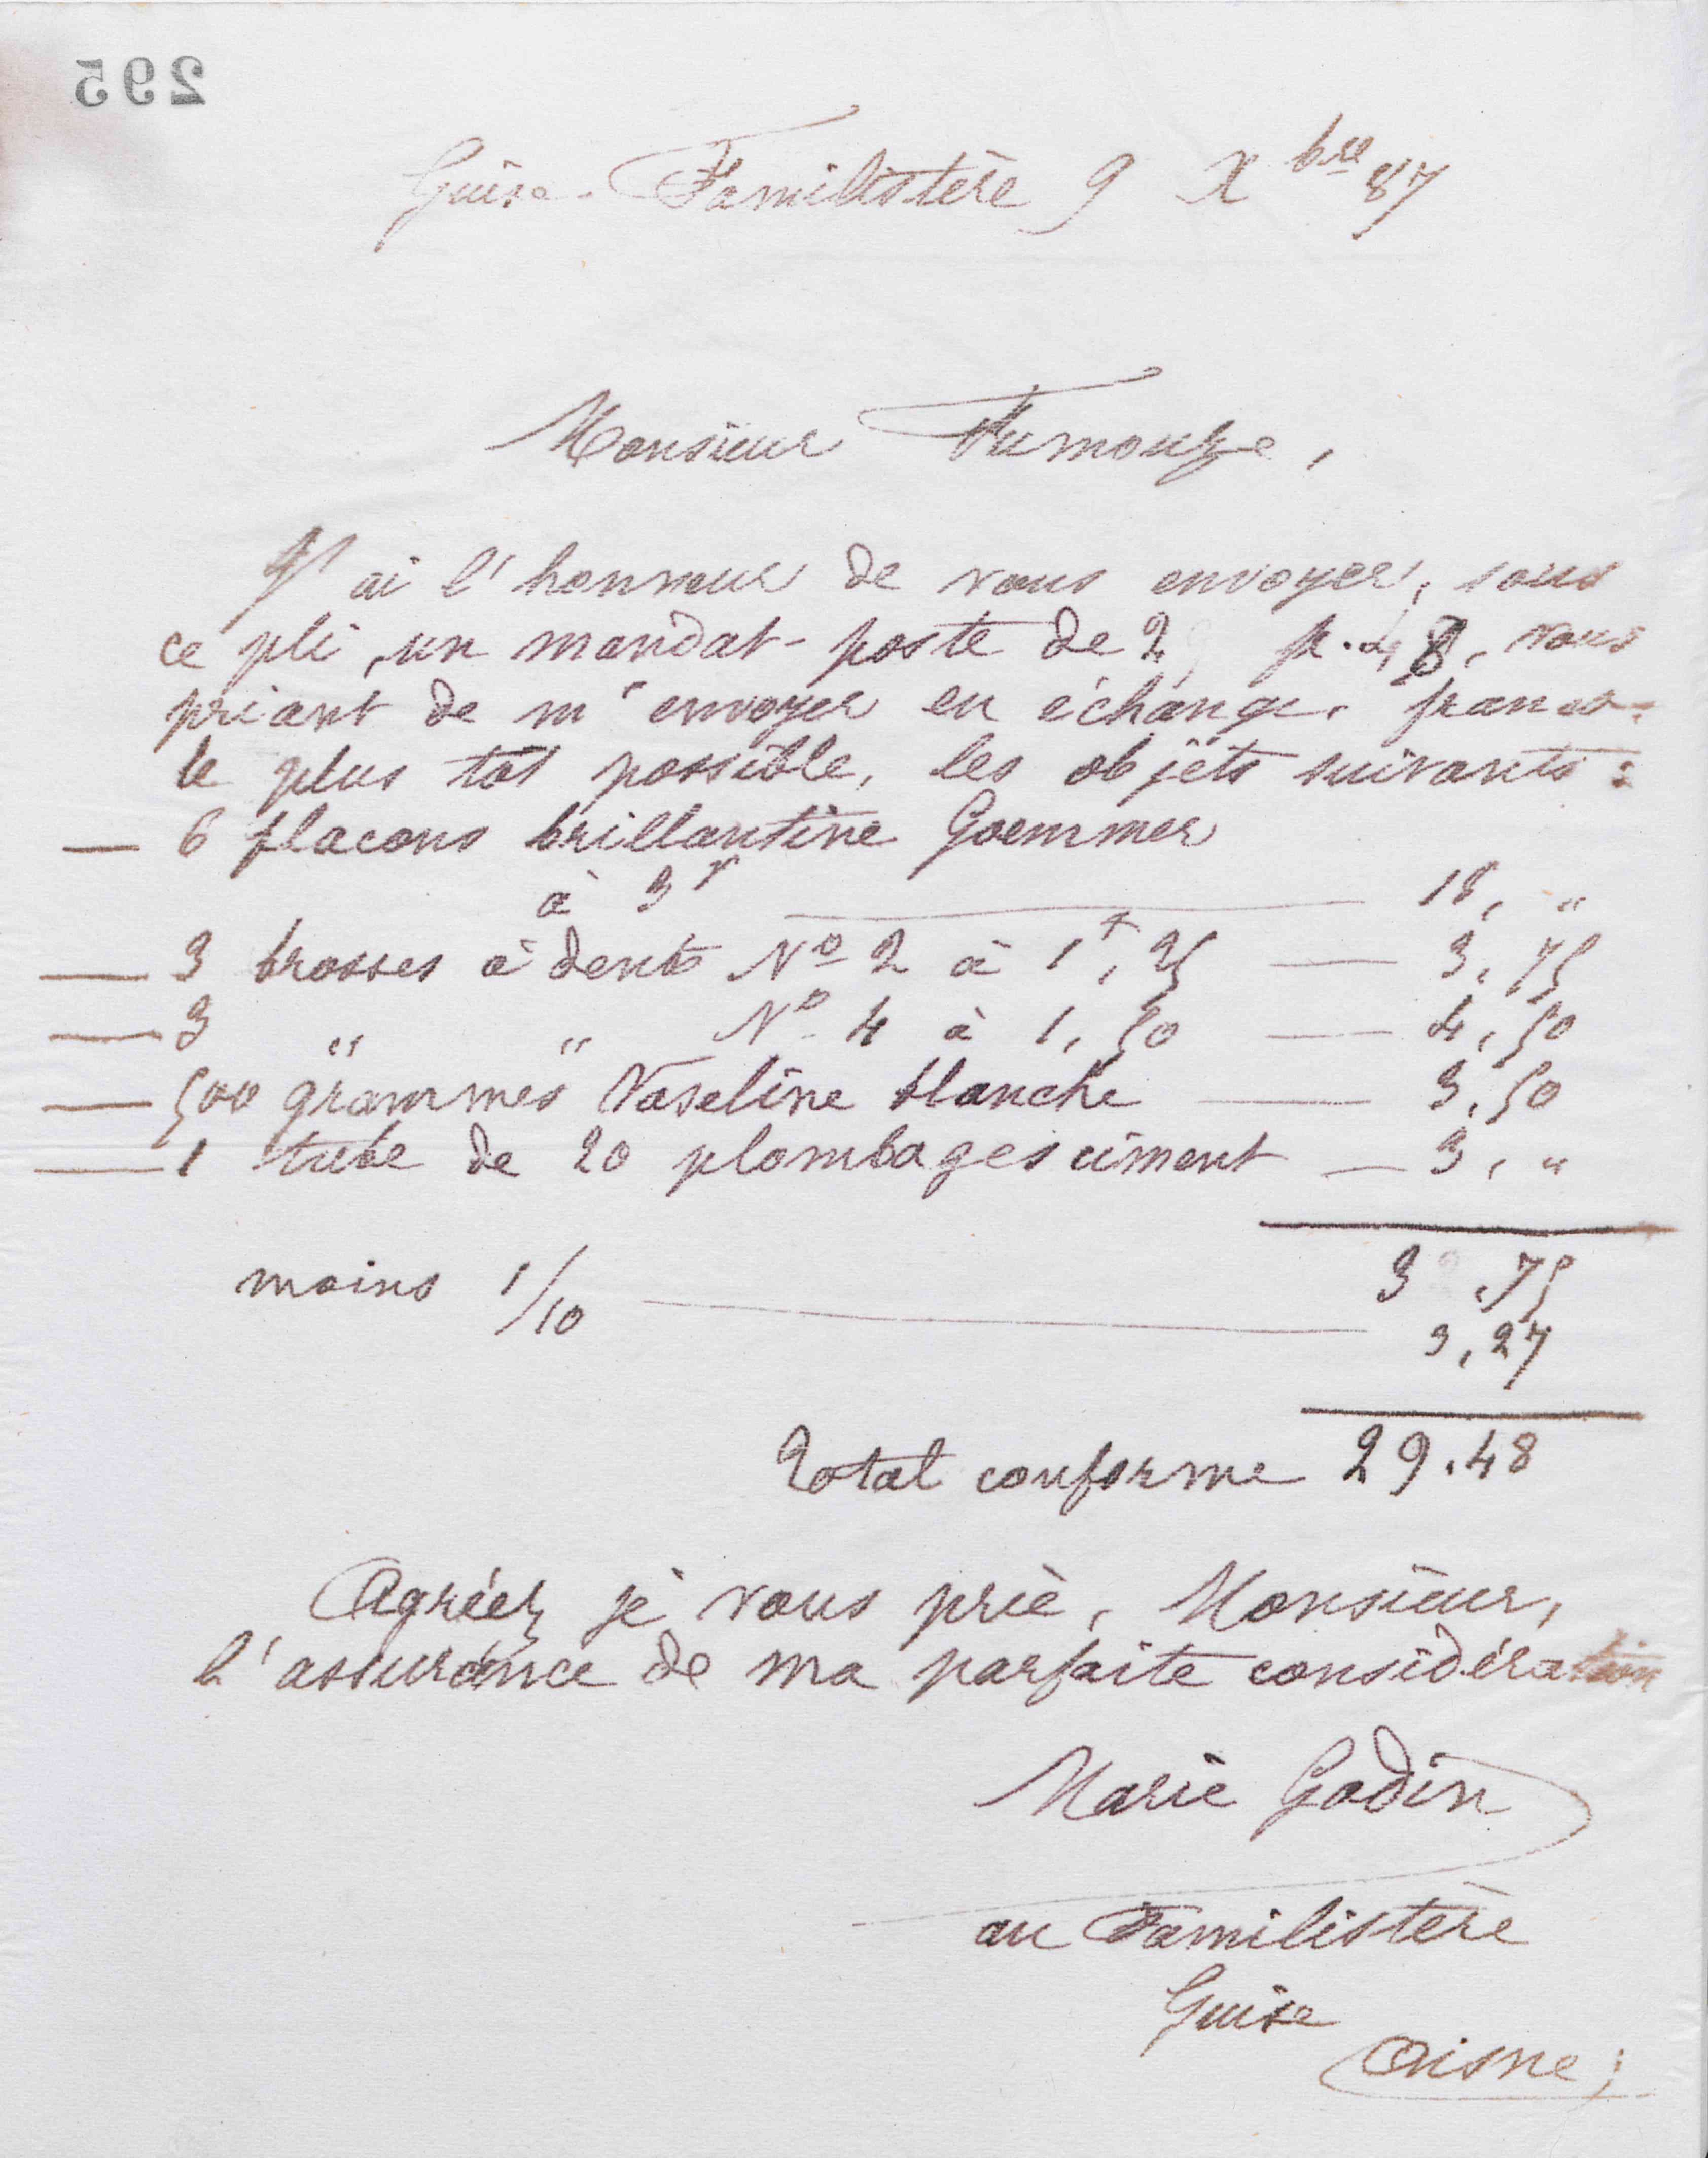 295
Guise-Familistère 9 Xbre 87
Monsieur Fumouze,
J'ai l'honneur de vous envoyer, sous
ce pli, un mandat-poste de 29 fr. 48, vous
priant de m'envoyer en échange, franco,
le plus tôt possible, les objets suivants :
— 6 flacons brillantine Goemmer
à 3f — 18, "
— 3 brosses à dents No 2 à 1f, 25 — 3, 75
— 3 " " No 4 à 1, 50 — 4, 50
— 500 grammes Vaseline blanche — 3, 50
— 1 tube de 20 plombages ciment — 3, "
32, 75
moins 1/10 — 3, 27
Total conforme 29.48
Agréez je vous prie, Monsieur,
l'assurance de ma parfaite considération
Marie Godin
au Familistère
Guise
Aisne;